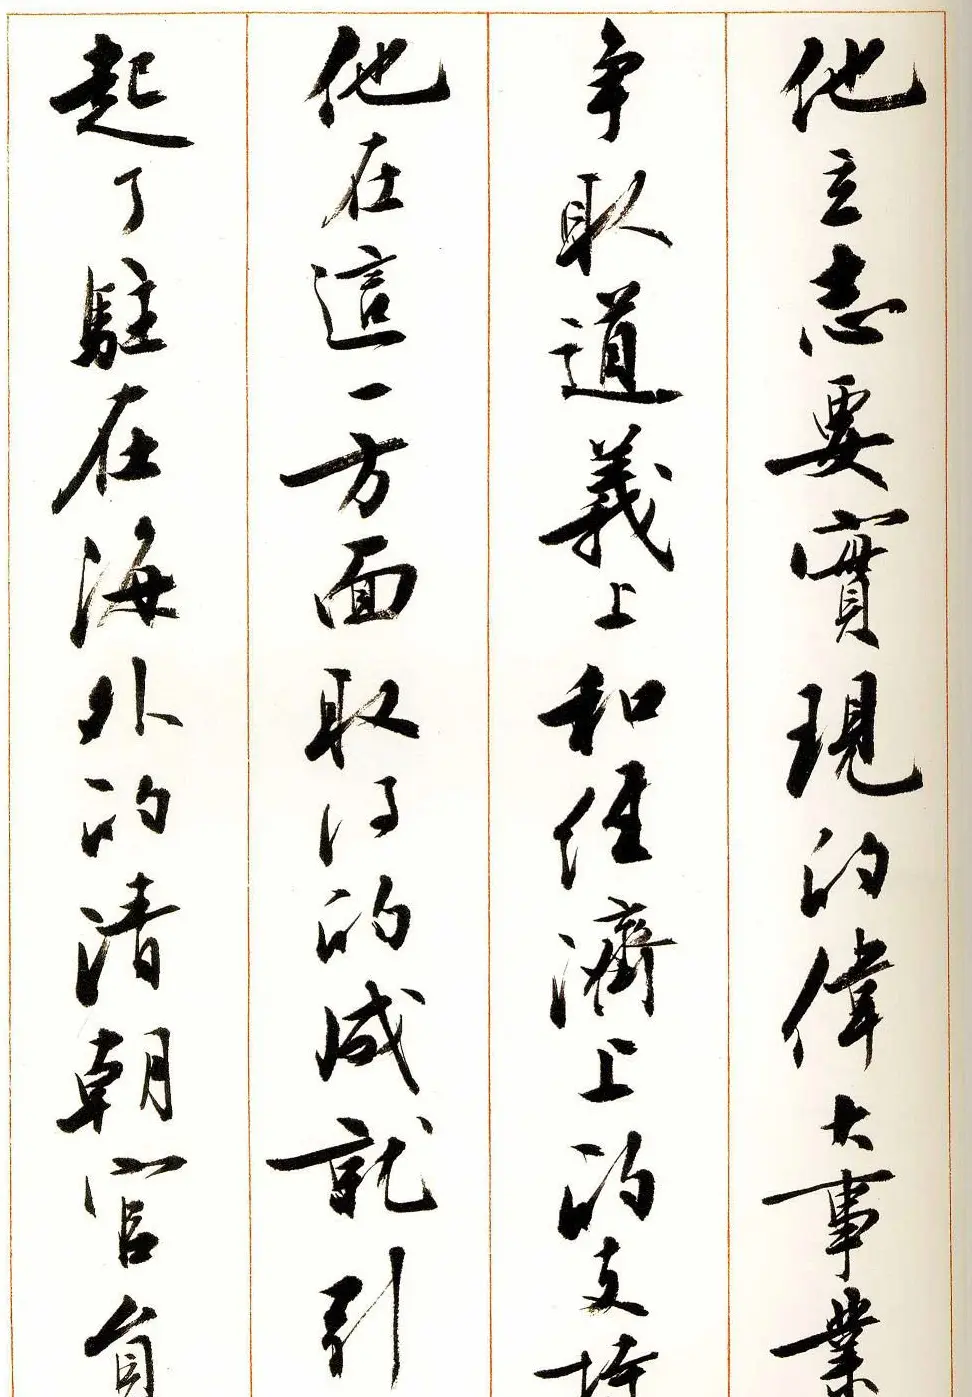 他立志要實現的偉大事業
争取道義上和經濟上的支持
他在這一方面取得的成就引
起了駐在海外的清朝官員